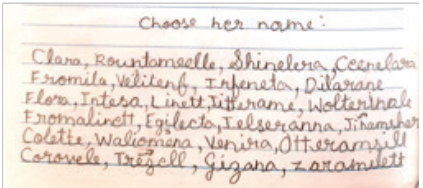 Choose her name:
Clara, Rountameelle, Shinelera, Ceenelara
Fromila, Velitenf, Irfeneta, Dilarane
Flora, Intesa, Linett, Jitterame, Wolterinale
Fromalinett, Egilecta, Ielseranna, Jinamsher
Colette, Waliomena, Venira, Otteramsill
Corovele, Iregell, Gigana, Zaramilett